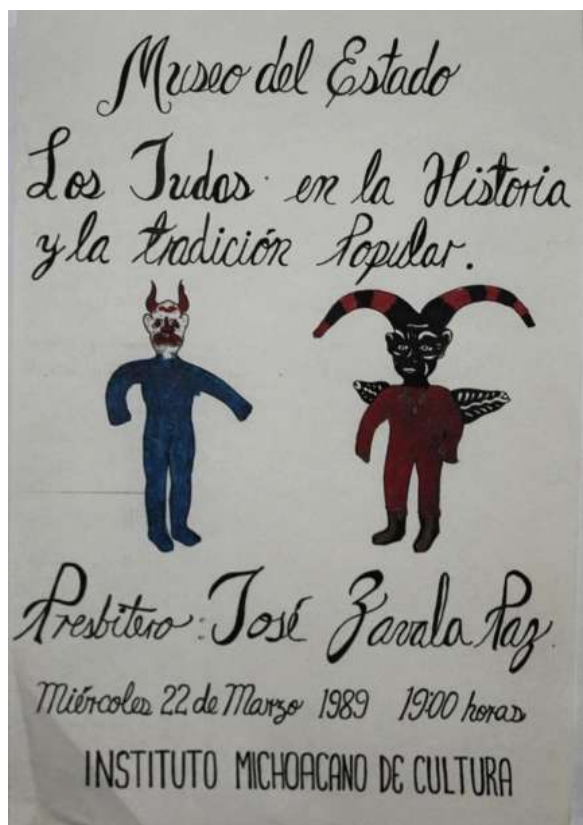 Museo del Estado
Los Judas en la Historia
y la tradición Popular.
Presbitero: José Zavala Paz.
Miércoles 22 de Marzo 1989 19:00 horas
INSTITUTO MICHOACANO DE CULTURA